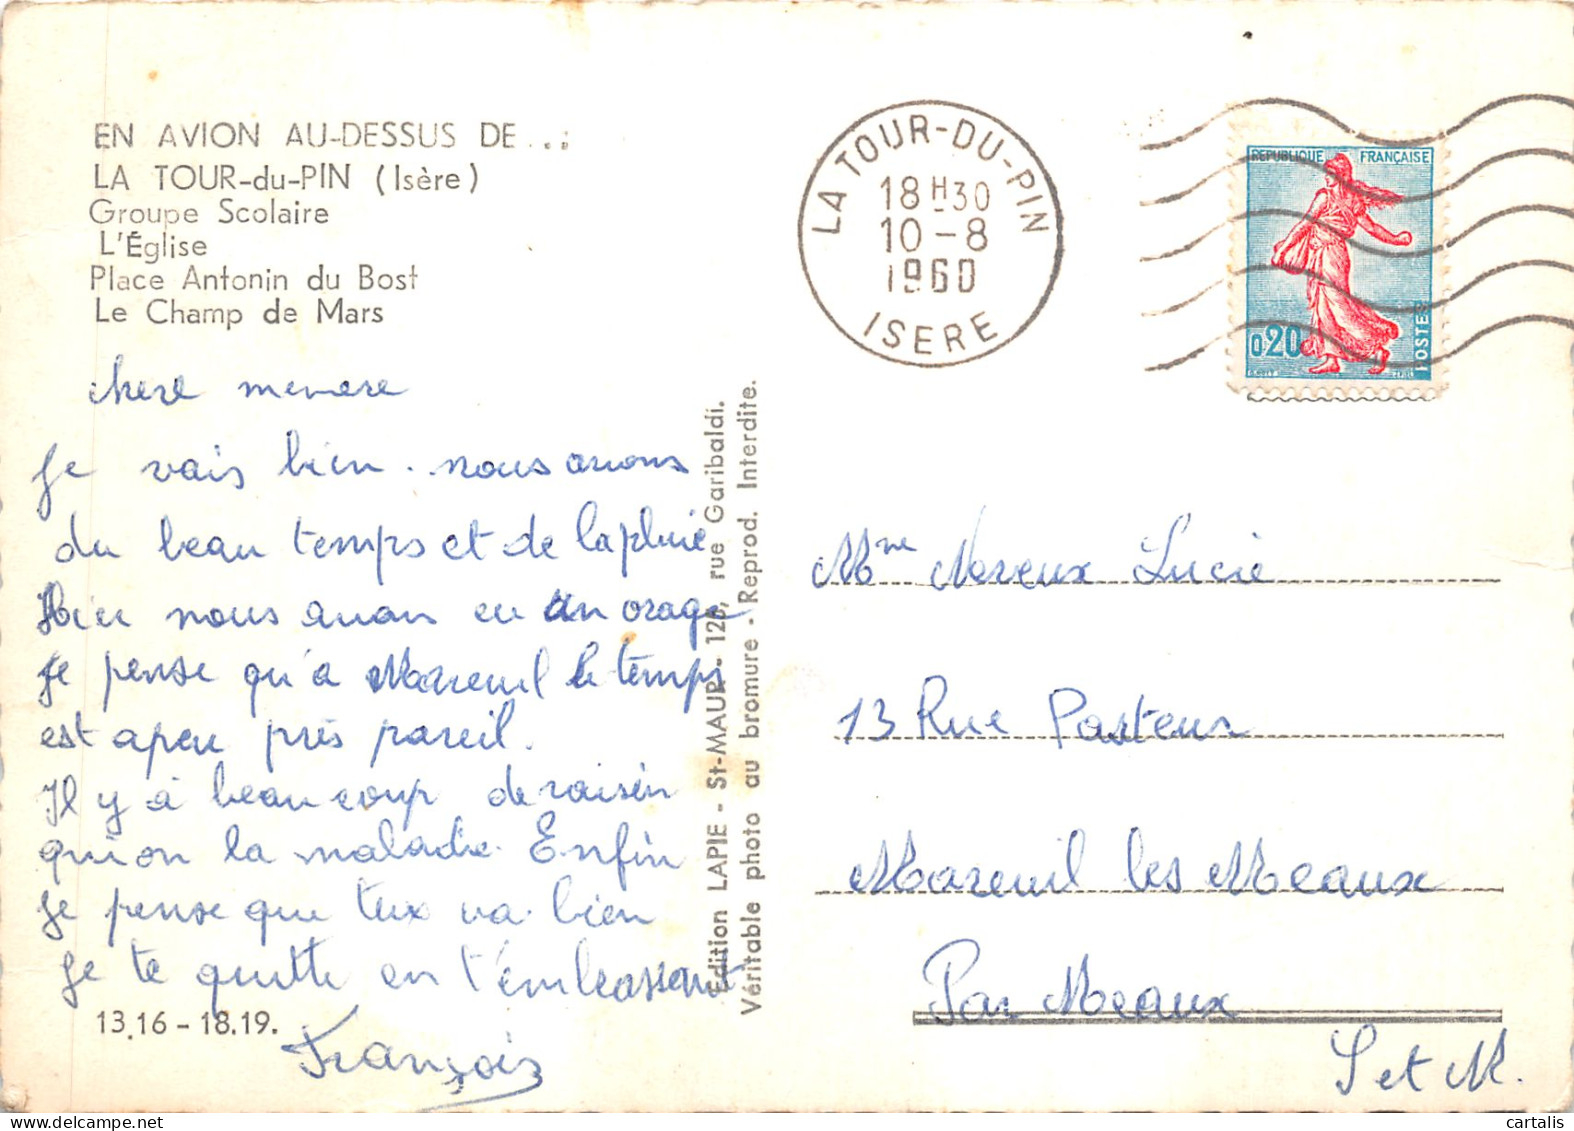 EN AVION AU-DESSUS DE...
LA TOUR-du-PIN (Isère)
Groupe Scolaire
L'Église
Place Antonin du Bost
Le Champ de Mars
chere memere
Je vais bien. nous avons
du beau temps et de la pluie
Hier nous avan eu un orage
Je pense qu'a Mareuil le temps
est apeu près pareil.
Il y à beaucoup de raisin
qui on la maladie. Enfin
je pense que tux va bien
Je te quitte en t'embrassent
François
13.16 - 18.19.
Édition LAPIE - St-MAUR - 126, rue Garibaldi.
Véritable photo au bromure - Reprod. Interdite.
LA TOUR-DU-PIN
18H30
10-8
1960
ISERE
REPUBLIQUE FRANÇAISE
0,20
POSTES
Mme Nereux Lucie
13 Rue Pasteur
Mareuil les Meaux
Par Meaux
S et M.
cartalis